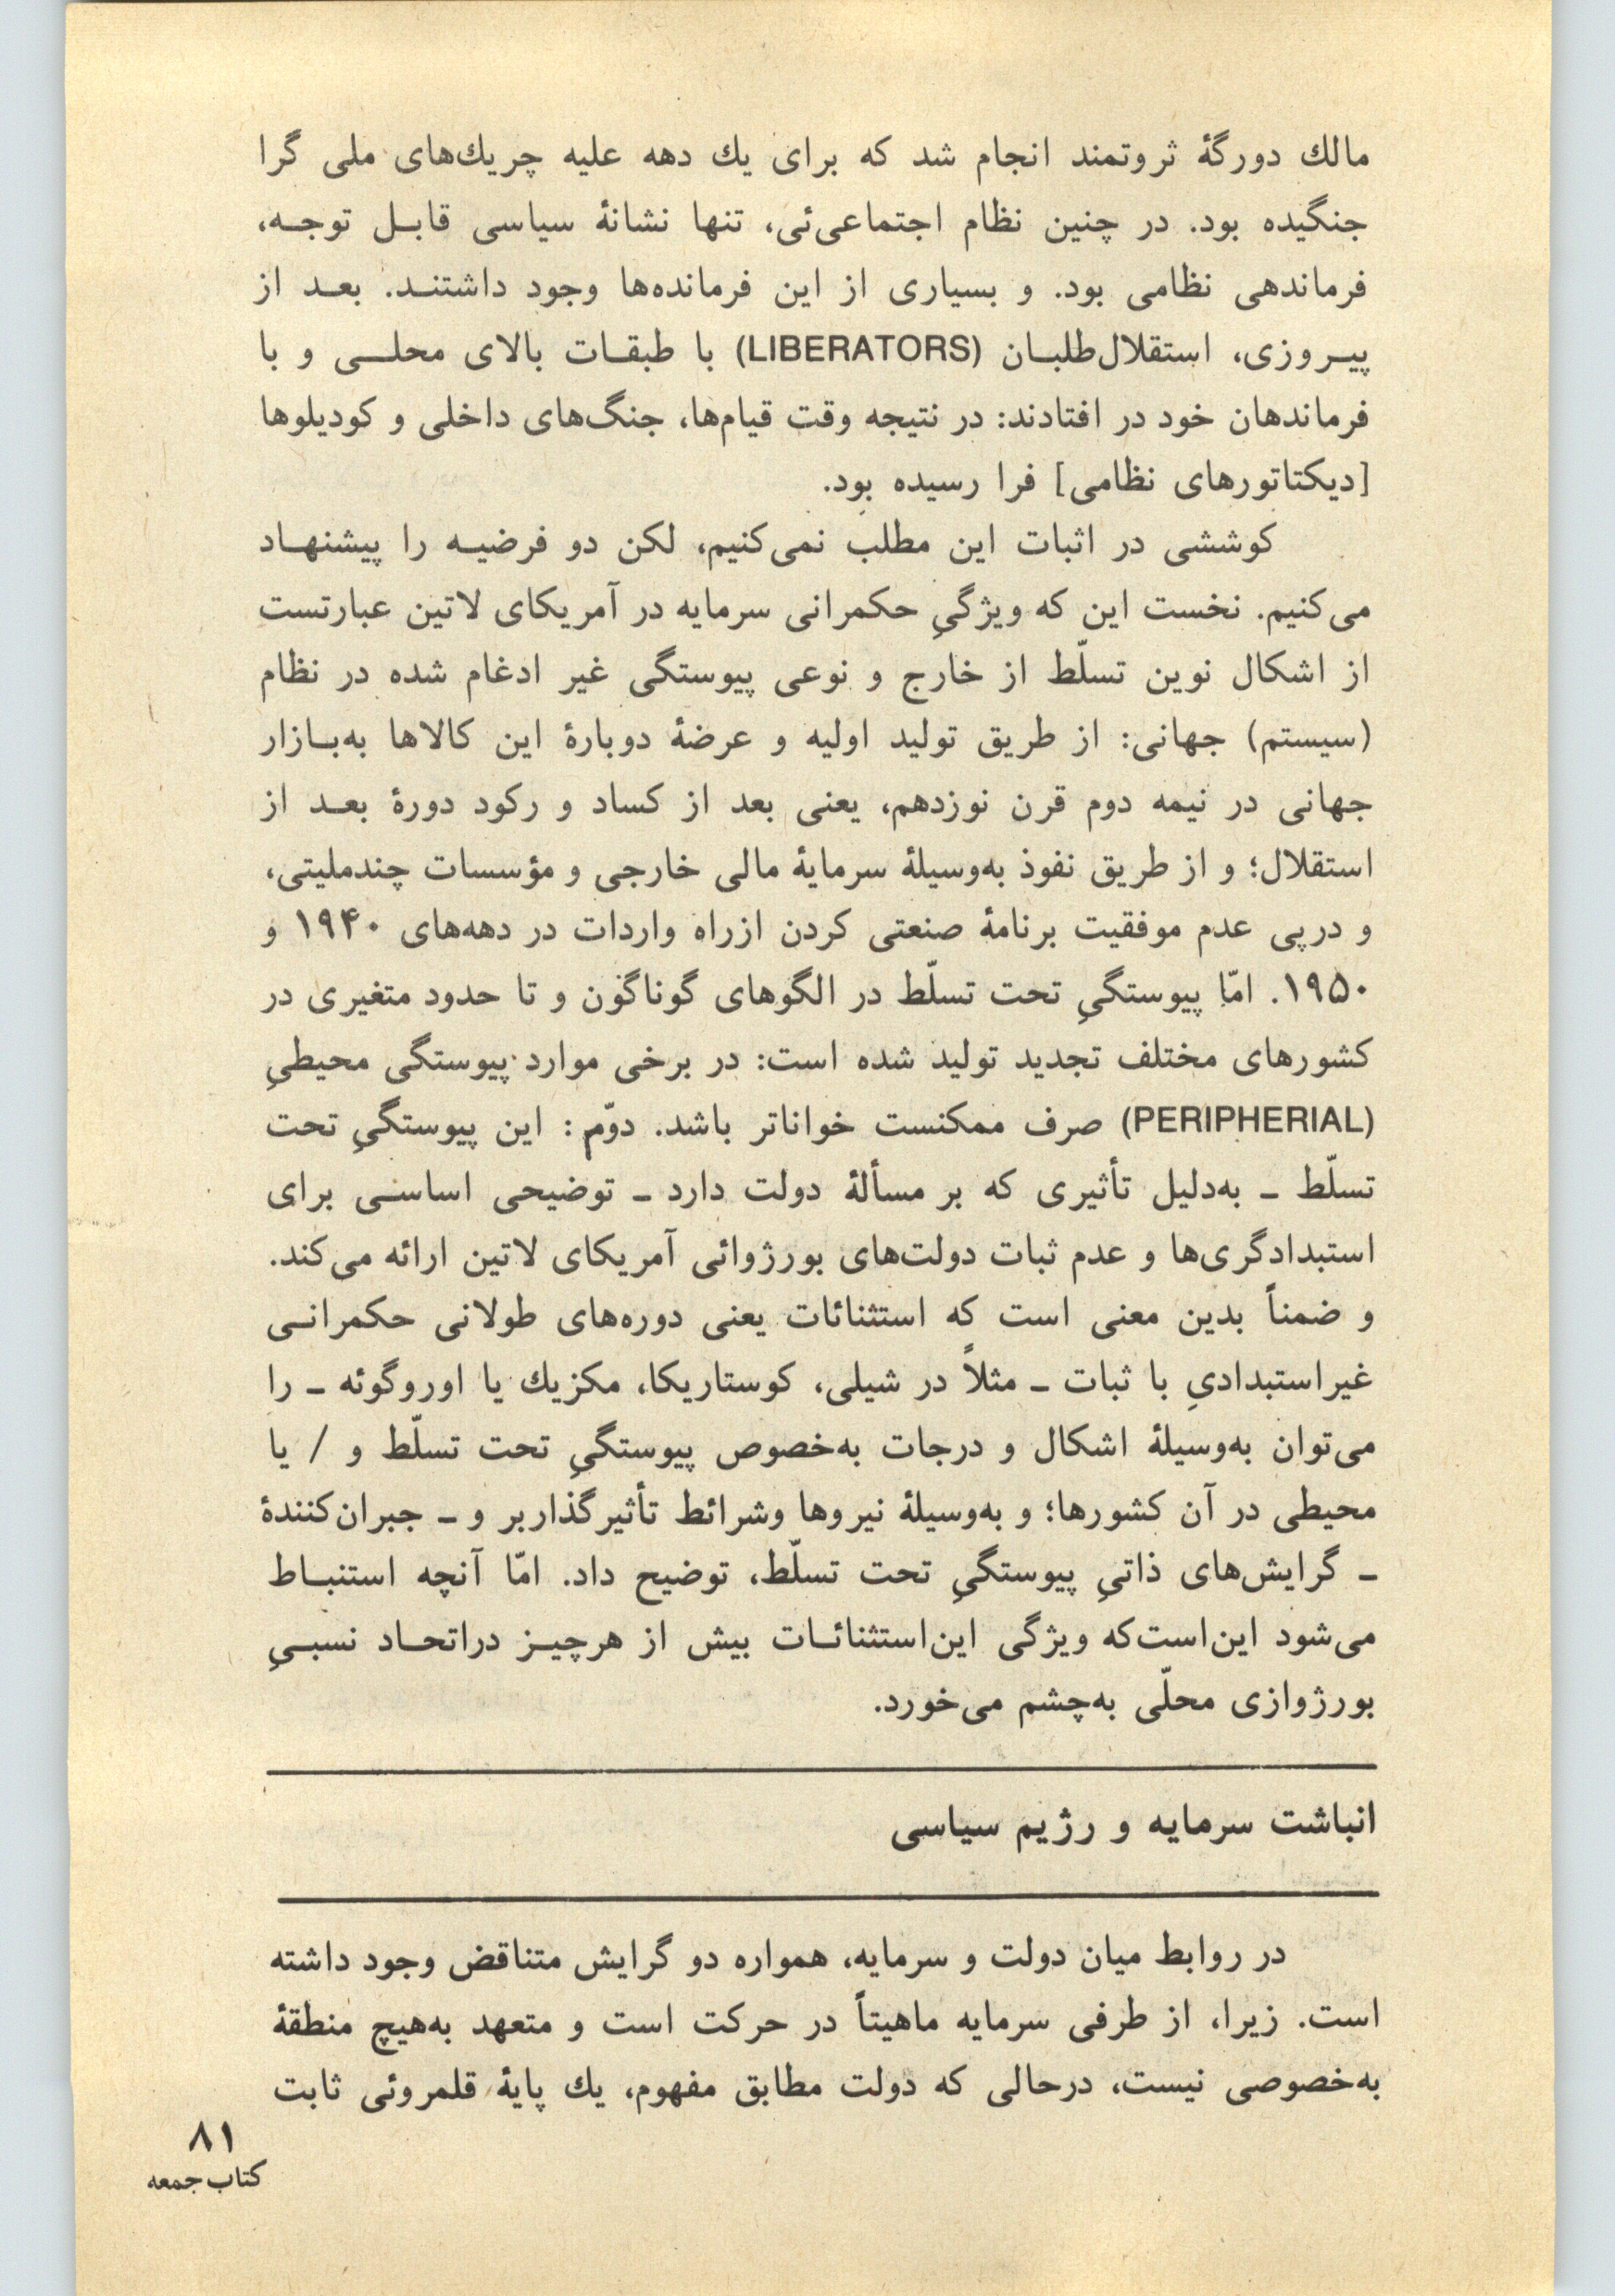 مالك دورگهٔ ثروتمند انجام شد که برای یك دهه علیه چریك‌های ملی گرا
جنگیده بود. در چنین نظام اجتماعی‌ئی، تنها نشانهٔ سیاسی قابل توجه،
فرماندهی نظامی بود. و بسیاری از این فرمانده‌ها وجود داشتند. بعد از
پیروزی، استقلال‌طلبان (LIBERATORS) با طبقات بالای محلی و با
فرماندهان خود در افتادند: در نتیجه وقت قیام‌ها، جنگ‌های داخلی و کودیلوها
[دیکتاتورهای نظامی] فرا رسیده بود.
کوششی در اثبات این مطلب نمی‌کنیم، لکن دو فرضیه را پیشنهاد
می‌کنیم. نخست این که ویژگیِ حکمرانی سرمایه در آمریکای لاتین عبارتست
از اشکال نوین تسلّط از خارج و نوعی پیوستگی غیر ادغام شده در نظام
(سیستم) جهانی: از طریق تولید اولیه و عرضهٔ دوبارهٔ این کالاها به‌بازار
جهانی در نیمه دوم قرن نوزدهم، یعنی بعد از کساد و رکود دورهٔ بعد از
استقلال؛ و از طریق نفوذ به‌وسیلهٔ سرمایهٔ مالی خارجی و مؤسسات چندملیتی،
و درپی عدم موفقیت برنامهٔ صنعتی کردن ازراه واردات در دهه‌های ۱۹۴۰ و
۱۹۵۰. امّا پیوستگیِ تحت تسلّط در الگوهای گوناگون و تا حدود متغیری در
کشورهای مختلف تجدید تولید شده است: در برخی موارد پیوستگی محیطیِ
(PERIPHERIAL) صرف ممکنست خواناتر باشد. دوّم: این پیوستگیِ تحت
تسلّط ـ به‌دلیل تأثیری که بر مسألهٔ دولت دارد ـ توضیحی اساسی برای
استبدادگری‌ها و عدم ثبات دولت‌های بورژوائی آمریکای لاتین ارائه می‌کند.
و ضمناً بدین معنی است که استثنائات یعنی دوره‌های طولانی حکمرانی
غیراستبدادیِ با ثبات ـ مثلاً در شیلی، کوستاریکا، مکزیك یا اوروگوئه ـ را
می‌توان به‌وسیلهٔ اشکال و درجات به‌خصوص پیوستگیِ تحت تسلّط و / یا
محیطی در آن کشورها؛ و به‌وسیلهٔ نیروها وشرائط تأثیرگذاربر و ـ جبران‌کنندهٔ
ـ گرایش‌های ذاتیِ پیوستگیِ تحت تسلّط، توضیح داد. امّا آنچه استنباط
می‌شود این‌است‌که ویژگی این‌استثنائات بیش از هرچیز دراتحاد نسبیِ
بورژوازی محلّی به‌چشم می‌خورد.
انباشت سرمایه و رژیم سیاسی
در روابط میان دولت و سرمایه، همواره دو گرایش متناقض وجود داشته
است. زیرا، از طرفی سرمایه ماهیتاً در حرکت است و متعهد به‌هیچ منطقهٔ
به‌خصوصی نیست، درحالی که دولت مطابق مفهوم، یك پایهٔ قلمروئی ثابت
۸۱
کتاب جمعه